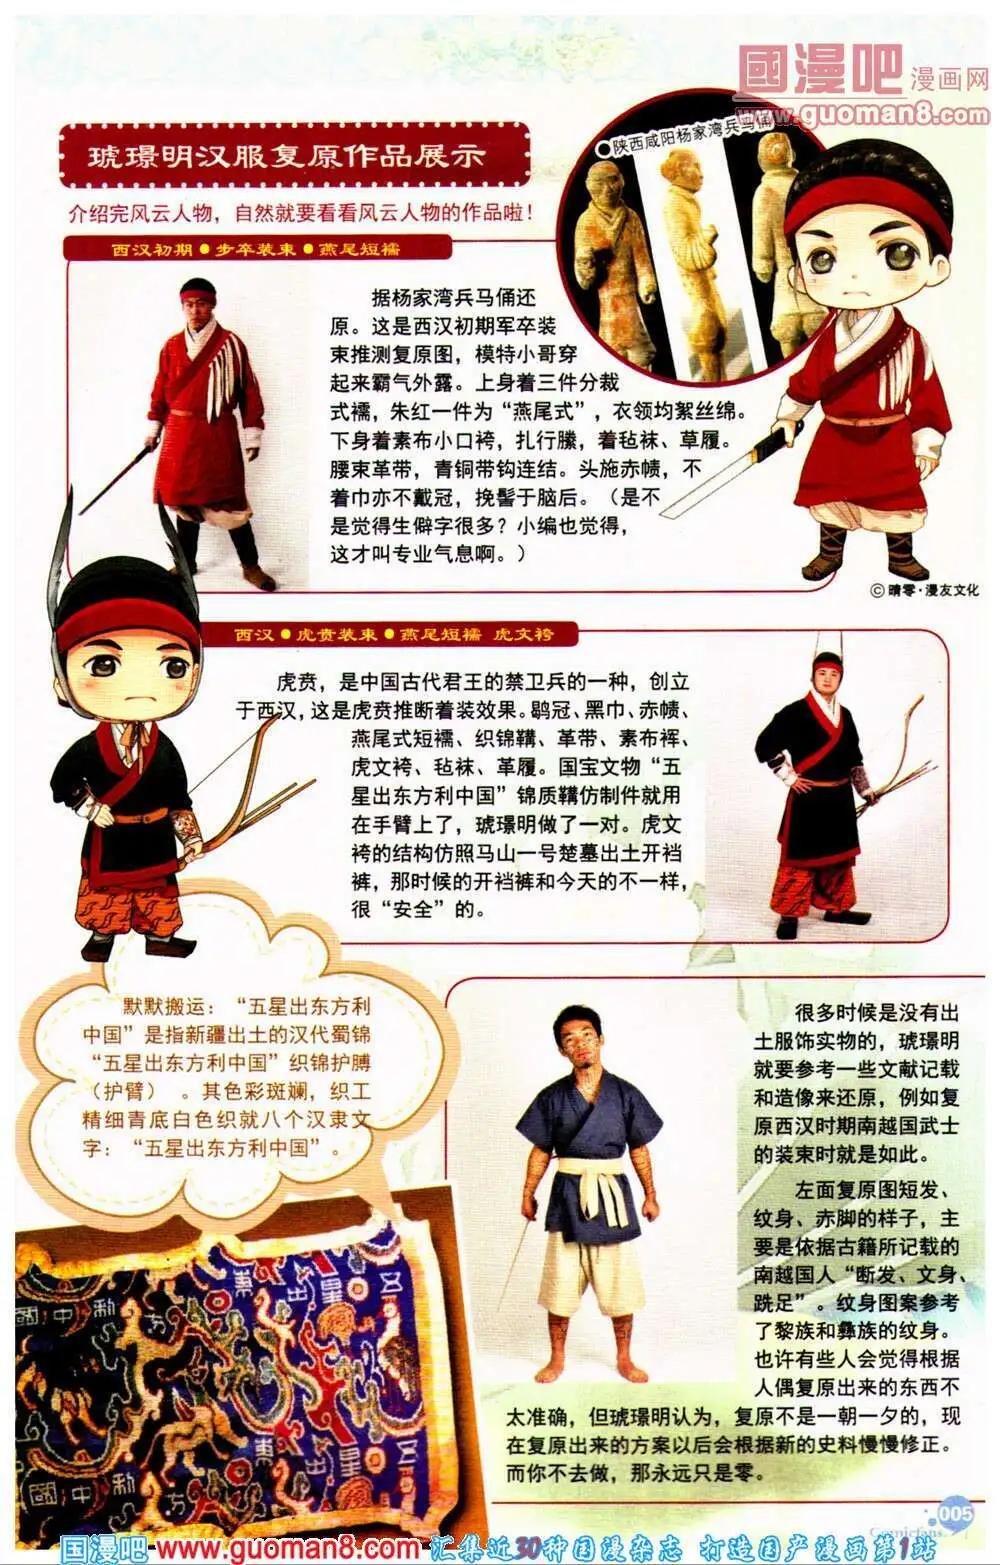 國漫吧漫画网
www.guoman8.com
琥璟明汉服复原作品展示
陕西咸阳杨家湾兵马俑
介绍完风云人物，自然就要看看风云人物的作品啦！
西汉初期●步卒装束●燕尾短襦
据杨家湾兵马俑还
原。这是西汉初期军卒装
束推测复原图，模特小哥穿
起来霸气外露。上身着三件分裁
式襦，朱红一件为“燕尾式”，衣领均絮丝绵。
下身着素布小口袴，扎行縢，着毡袜、草履。
腰束革带，青铜带钩连结。头施赤帻，不
着巾亦不戴冠，挽髻于脑后。（是不
是觉得生僻字很多？小编也觉得，
这才叫专业气息啊。）
©晴零·漫友文化
西汉●虎贲装束●燕尾短襦 虎文袴
虎贲，是中国古代君王的禁卫兵的一种，创立
于西汉，这是虎贲推断着装效果。鹖冠、黑巾、赤帻、
燕尾式短襦、织锦鞲、革带、素布裈、
虎文袴、毡袜、革履。国宝文物“五
星出东方利中国”锦质鞲仿制件就用
在手臂上了，琥璟明做了一对。虎文
袴的结构仿照马山一号楚墓出土开裆
裤，那时候的开裆裤和今天的不一样，
很“安全”的。
默默搬运：“五星出东方利
中国”是指新疆出土的汉代蜀锦
“五星出东方利中国”织锦护膊
（护臂）。其色彩斑斓，织工
精细青底白色织就八个汉隶文
字：“五星出东方利中国”。
很多时候是没有出
土服饰实物的，琥璟明
就要参考一些文献记载
和造像来还原，例如复
原西汉时期南越国武士
的装束时就是如此。
左面复原图短发、
纹身、赤脚的样子，主
要是依据古籍所记载的
南越国人“断发、文身、
跣足”。纹身图案参考
了黎族和彝族的纹身。
也许有些人会觉得根据
人偶复原出来的东西不
太准确，但琥璟明认为，复原不是一朝一夕的，现
在复原出来的方案以后会根据新的史料慢慢修正。
而你不去做，那永远只是零。
東出星五
國中利
國中
Comicfans
005
国漫吧 www.guoman8.com 汇集近30种国漫杂志 打造国产漫画第1站